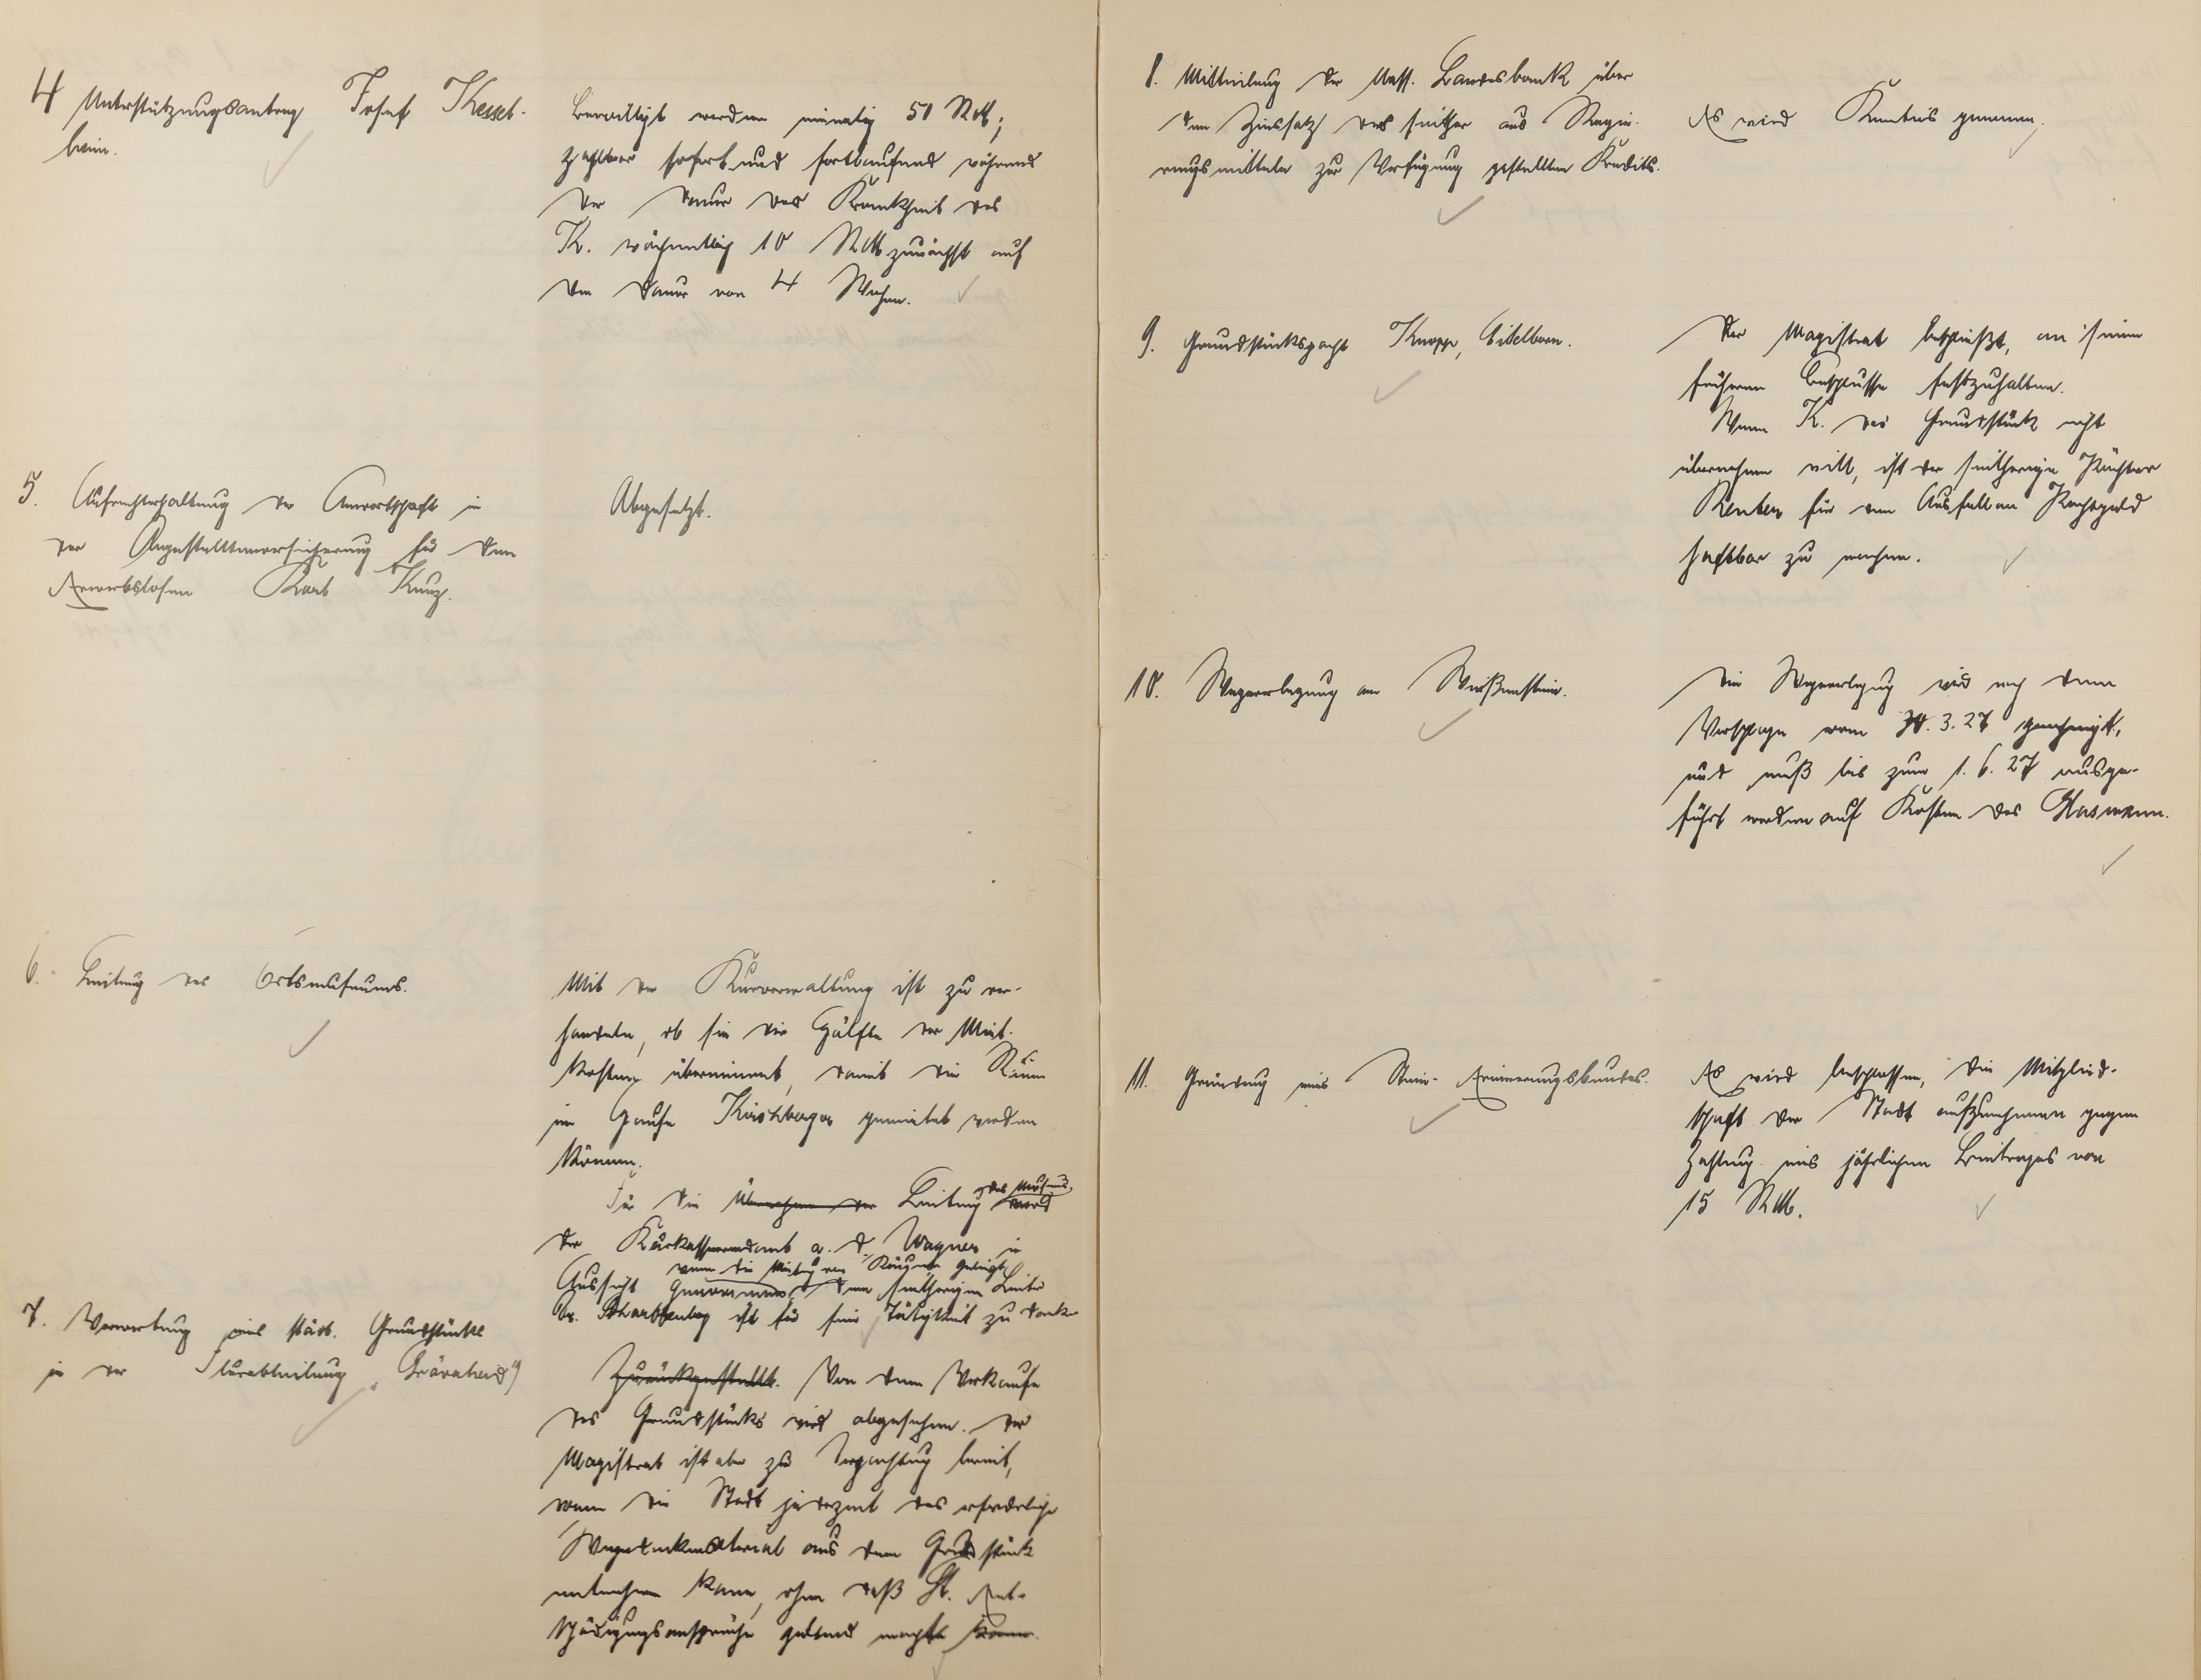 4 Unterstützungsantrag Josef Kessel-
heim.
Bewilligt werden einmalig 50 RM;
zahlbar sofort und fortlaufend während
der Dauer der Krankheit des
K. wöchentlich 10 RM zunächst auf
die Dauer von 4 Wochen.
5. Aufrechterhaltung der Anwartschaft in
der Angestelltenversicherung für den
Erwerbslosen Karl Kunz.
Abgesetzt.
6. Leitung des Ortsmuseums.
Mit der Kurverwaltung ist zu ver-
handeln, ob sie die Hälfte der Miet-
kosten übernimmt, damit die Räume
im Hause Kirschberger gemietet werden
können.
Für die Übernahme der Leitung des Museums wird
der Kurkassenrendant a. D. Wagner in
wenn die Mietung der Räume gelingt
Aussicht genommen, dem seitherigen Leiter
ist für seine Tätigkeit zu danken
7. Verwertung eines städt. Grundstücks
in der Flurabteilung
Zurückgestellt. Von dem Verkaufe
des Grundstücks wird abgesehen. Der
Magistrat ist aber zur Verpachtung bereit,
wenn die Stadt jederzeit das erforderliche
Wegedeckmaterial aus dem Grundstück
entnehmen kann, ohne daß St. Ent-
schädigungsansprüche geltend macht kann.
8. Mitteilung der Nass. Landesbank über
den Zinssatz des seither aus Regie-
rungsmitteln zur Verfügung gestellten Kredits.
Es wird Kentnis genommen.
9. Grundstückspacht Knopp, Eitelborn.
Der Magistrat beschließt, an seinem
früheren Beschlusse festzuhalten.
Wenn K. das Grundstück nicht
übernehmen will, ist der seitherige Pächter
für den Ausfall an Pachtgeld
haftbar zu machen.
10. Wegeverlegung am Weißenstein.
Die Wegeverlegung wird nach dem
Vorschlage vom 30. 3. 27 genehmigt,
und muß bis zum 1. 6. 27 ausge-
führt werden auf Kosten des Glasmann.
11. Gründung eines Stein-Erinnerungsbundes.
Es wird beschlossen, die Mitglied-
schaft der Stadt aufzunehmen gegen
Zahlung eines jährlichen Beitrages von
15 RM.